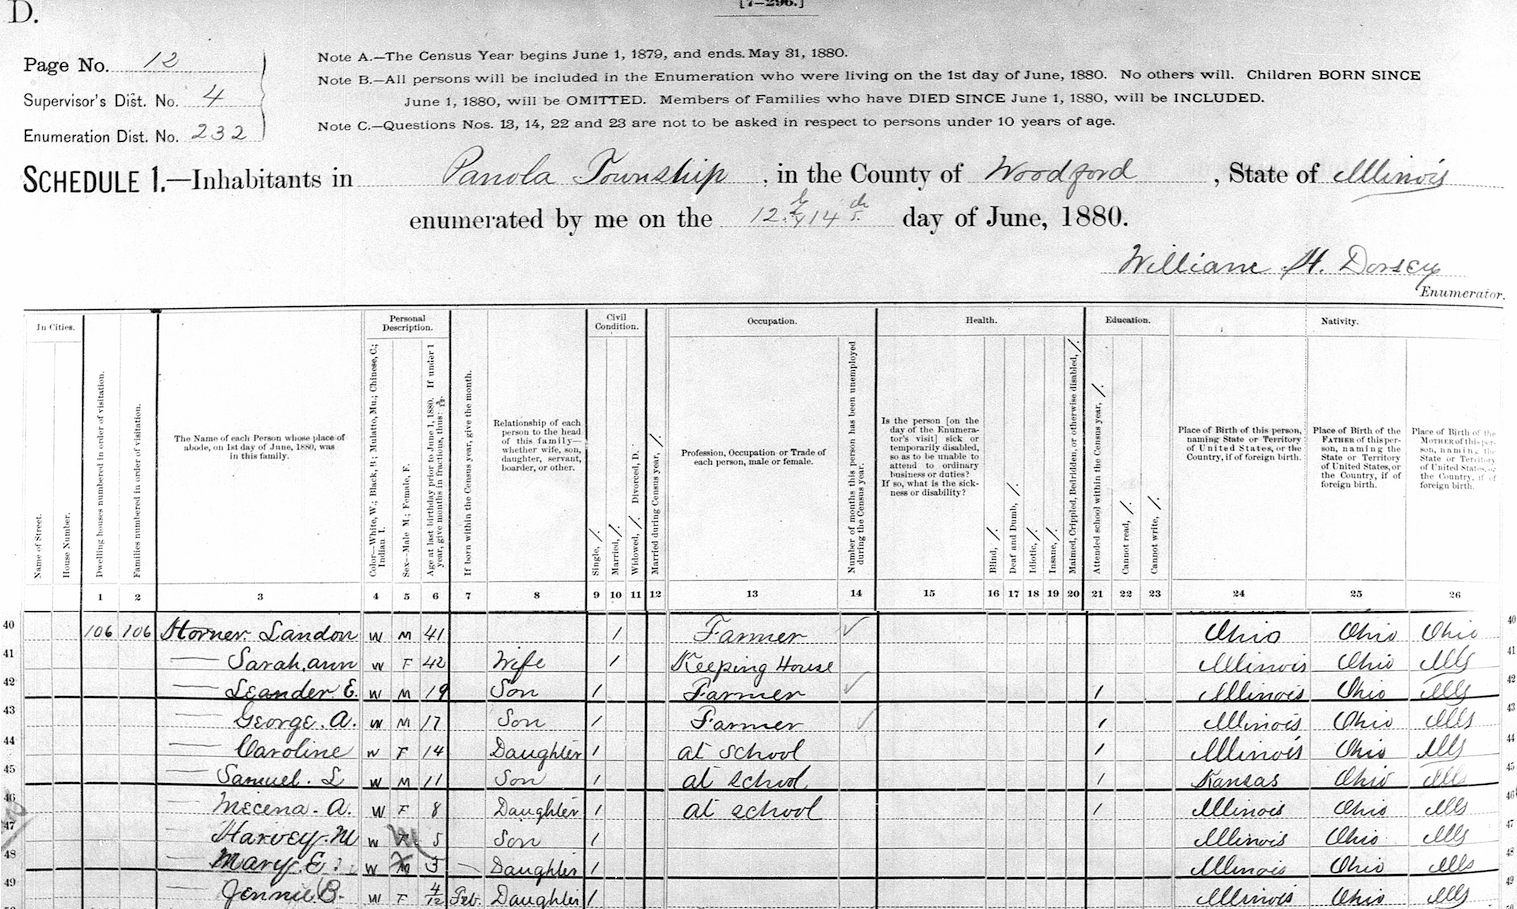 D.
[7-296.]
Page No. 12
Supervisor's Dist. No. 4
Enumeration Dist. No. 232
Note A.—The Census Year begins June 1, 1879, and ends May 31, 1880.
Note B.—All persons will be included in the Enumeration who were living on the 1st day of June, 1880. No others will. Children BORN SINCE
June 1, 1880, will be OMITTED. Members of Families who have DIED SINCE June 1, 1880, will be INCLUDED.
Note C.—Questions Nos. 13, 14, 22 and 23 are not to be asked in respect to persons under 10 years of age.
SCHEDULE 1.—Inhabitants in Panola Township, in the County of Woodford, State of Illinois
enumerated by me on the 12th & 14th day of June, 1880.
William H. Dorsey
Enumerator.
In Cities. Personal Description. Civil Condition. Occupation. Health. Education. Nativity.
Name of Street.
House Number.
Dwelling houses numbered in order of visitation.
Families numbered in order of visitation.
The Name of each Person whose place of abode, on 1st day of June, 1880, was in this family.
Color—White, W.; Black, B.; Mulatto, Mu.; Chinese, C.; Indian I.
Sex—Male M.; Female, F.
Age at last birthday prior to June 1, 1880. If under 1 year, give months in fractions, thus: 3/12
If born within the Census year, give the month.
Relationship of each person to the head of this family—whether wife, son, daughter, servant, boarder, or other.
Single, /.
Married, /.
Widowed, /. Divorced, D.
Married during Census year, /.
Profession, Occupation or Trade of each person, male or female.
Number of months this person has been unemployed during the Census year.
Is the person [on the day of the Enumerator's visit] sick or temporarily disabled, so as to be unable to attend to ordinary business or duties? If so, what is the sickness or disability?
Blind, /.
Deaf and Dumb, /.
Idiotic, /.
Insane, /.
Maimed, Crippled, Bedridden, or otherwise disabled, /.
Attended school within the Census year, /.
Cannot read, /.
Cannot write, /.
Place of Birth of this person, naming State or Territory of United States, or the Country, if of foreign birth.
Place of Birth of the FATHER of this person, naming the State or Territory of United States, or the Country, if of foreign birth.
Place of Birth of the MOTHER of this person, naming the State or Territory of United States, or the Country, if of foreign birth.
1 2 3 4 5 6 7 8 9 10 11 12 13 14 15 16 17 18 19 20 21 22 23 24 25 26
40 106 106 Horner Landon W M 41 / Farmer ✓ Ohio Ohio Ohio 40
41 — Sarah, ann W F 42 Wife / Keeping House Illinois Ohio Ills 41
42 — Leander E. W M 19 Son / Farmer ✓ / Illinois Ohio Ills 42
43 — George. A. W M 17 Son / Farmer ✓ / Illinois Ohio Ills 43
44 — Caroline W F 14 Daughter / at School / Illinois Ohio Ills 44
45 — Samuel. L W M 11 Son / at School / Kansas Ohio Ills 45
46 — Mecena. A. W F 8 Daughter / at School / Illinois Ohio Ills 46
47 — Harvey. M W M 5 Son / Illinois Ohio Ills 47
48 — Mary. E. W 3 Daughter / Illinois Ohio Ills 48
49 — Jennie B. W F 4/12 Feb. Daughter / Illinois Ohio Ills 49